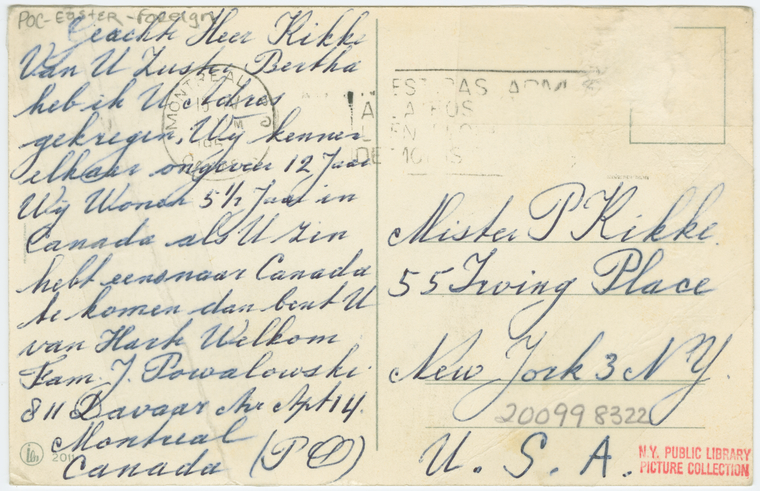 POC-Easter-Foreign
Geachte Heer Kikke
Van U Zuster Bertha
heb ik U Adres
gekregen, Wij kennen
elkaar ongeveer 12 Jaar
Wij Wonen 5 1/2 Jaar in
Canada als U Zin
hebt eens naar Canada
te komen dan bent U
van Harte Welkom
Fam. J. Powalowski.
811 Davaar Ave Apt 14.
Montreal
Canada (PQ)
MONTREAL
Mister P Kikke.
55 Irving Place
New York 3 NY.
200998322
U. S. A.
N.Y. PUBLIC LIBRARY
PICTURE COLLECTION